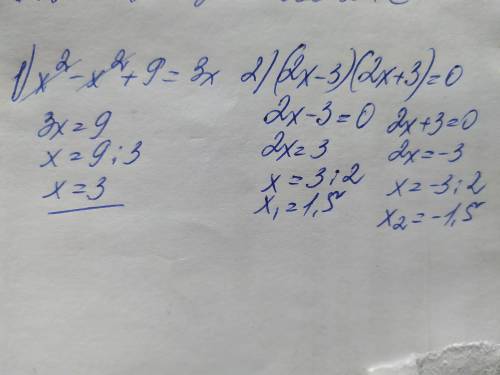 1) x² - x² + 9 = 3x
3x = 9
x = 9 : 3
x = 3
2) (2x-3)(2x+3) = 0
2x-3 = 0
2x = 3
x = 3 : 2
x₁ = 1,5
2x+3 = 0
2x = -3
x = -3 : 2
x₂ = -1,5